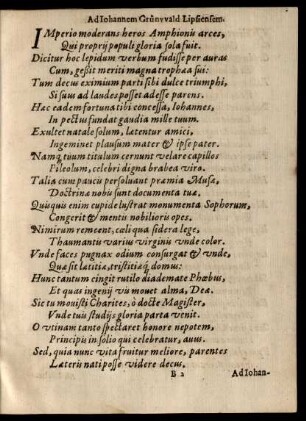 Ad Iohannem Grünyvald Lipsiensem.
IMperio moderans heros Amphionis arces,
Qui proprij populi gloria sola fuit.
Dicitur hoc lepidum verbum fudisse per auras
Cum, gessit meriti magna trophæa sui:
Tum decus eximium parti sibi dulce triumphi,
Si suus ad laudes posset adesse parens.
Hac eadem fortuna tibi concessa, Iohannes,
In pectus fundat gaudia mille tuum.
Exultet natale solum, lætentur amici,
Ingeminet plausum mater & ipse pater.
Namq́ tuum titulum cernunt velare capillos
Pileolum, celebri digna brabea viro.
Talia cum paucis persoluant præmia Musæ,
Doctrinæ nobis sunt documenta tuæ,
Quiquis enim cupide lustrat monumenta Sophorum,
Congerit & mentis nobilioris opes.
Nimirum remeent, cœli qua sidera lege,
Thaumantis varius virginis vnde color.
Vnde faces pugnax odium consurgat & vnde,
Quæ sit lætitiæ, tristitiæq́ domus:
Hunc tantum cingit rutilo diademate Phœbus,
Et quas ingenij vis mouet alma, Dea.
Sic tu mouisti Charites, ô docte Magister,
Vnde tuis studijs gloria parta venit.
O vtinam tanto spectaret honore nepotem,
Principis in solio qui celebratur, auus.
Sed, quia nunc vita fruitur meliore, parentes
Læteris nati posse videre decus.
B 2
Ad Iohan-